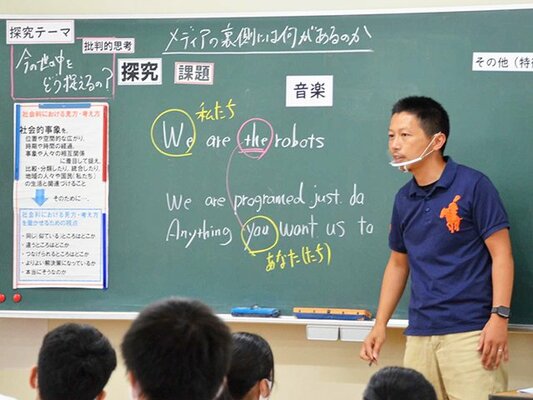 探究テーマ
今の世の中を
どう捉えるの?
批判的思考
探究
課題
メディアの裏側には何があるのか
その他(特
音楽
社会科における見方・考え方
社会的事象を、
位置や空間的な広がり、
時期や時間の経過、
事象や人々の相互関係
に着目して捉え、
比較・分類したり、統合したり、
地域の人々や国民(私たち)
の生活と関連づけること
そのために…、
社会科における見方・考え方
を働かせるための視点
・同じ(似ている)ところはどこか
・違うところはどこか
・つなげられるところはどこか
・よりよい解決策になっているか
・本当にそうなのか
私たち
We are the robots
We are programed just do
Anything you want us to
あなた(たち)